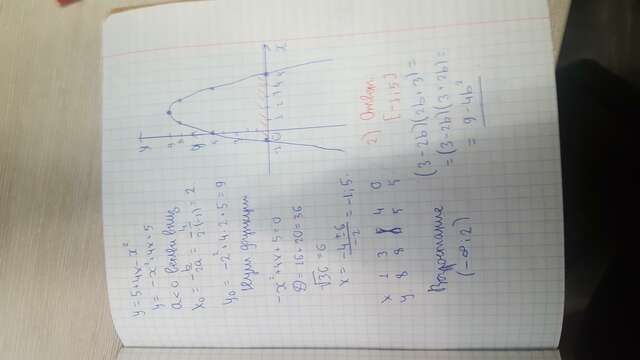 y=5+4x-x²
y=-x²+4x+5
a<0 ветви вниз
x₀ = -b/2a = -4/2·(-1) = 2
y₀ = -2²+4·2+5=9
Нули функции
-x²+4x+5=0
D=16+20=36
√36=6
x = -4±6/-2 = -1; 5.
x 1 3 4 0
y 8 8 5 5
Возрастание
(-∞; 2)
y
x
2) Ответ:
[-1; 5]
(3-2b)(2b+3)=
=(3-2b)(3+2b)=
=9-4b²